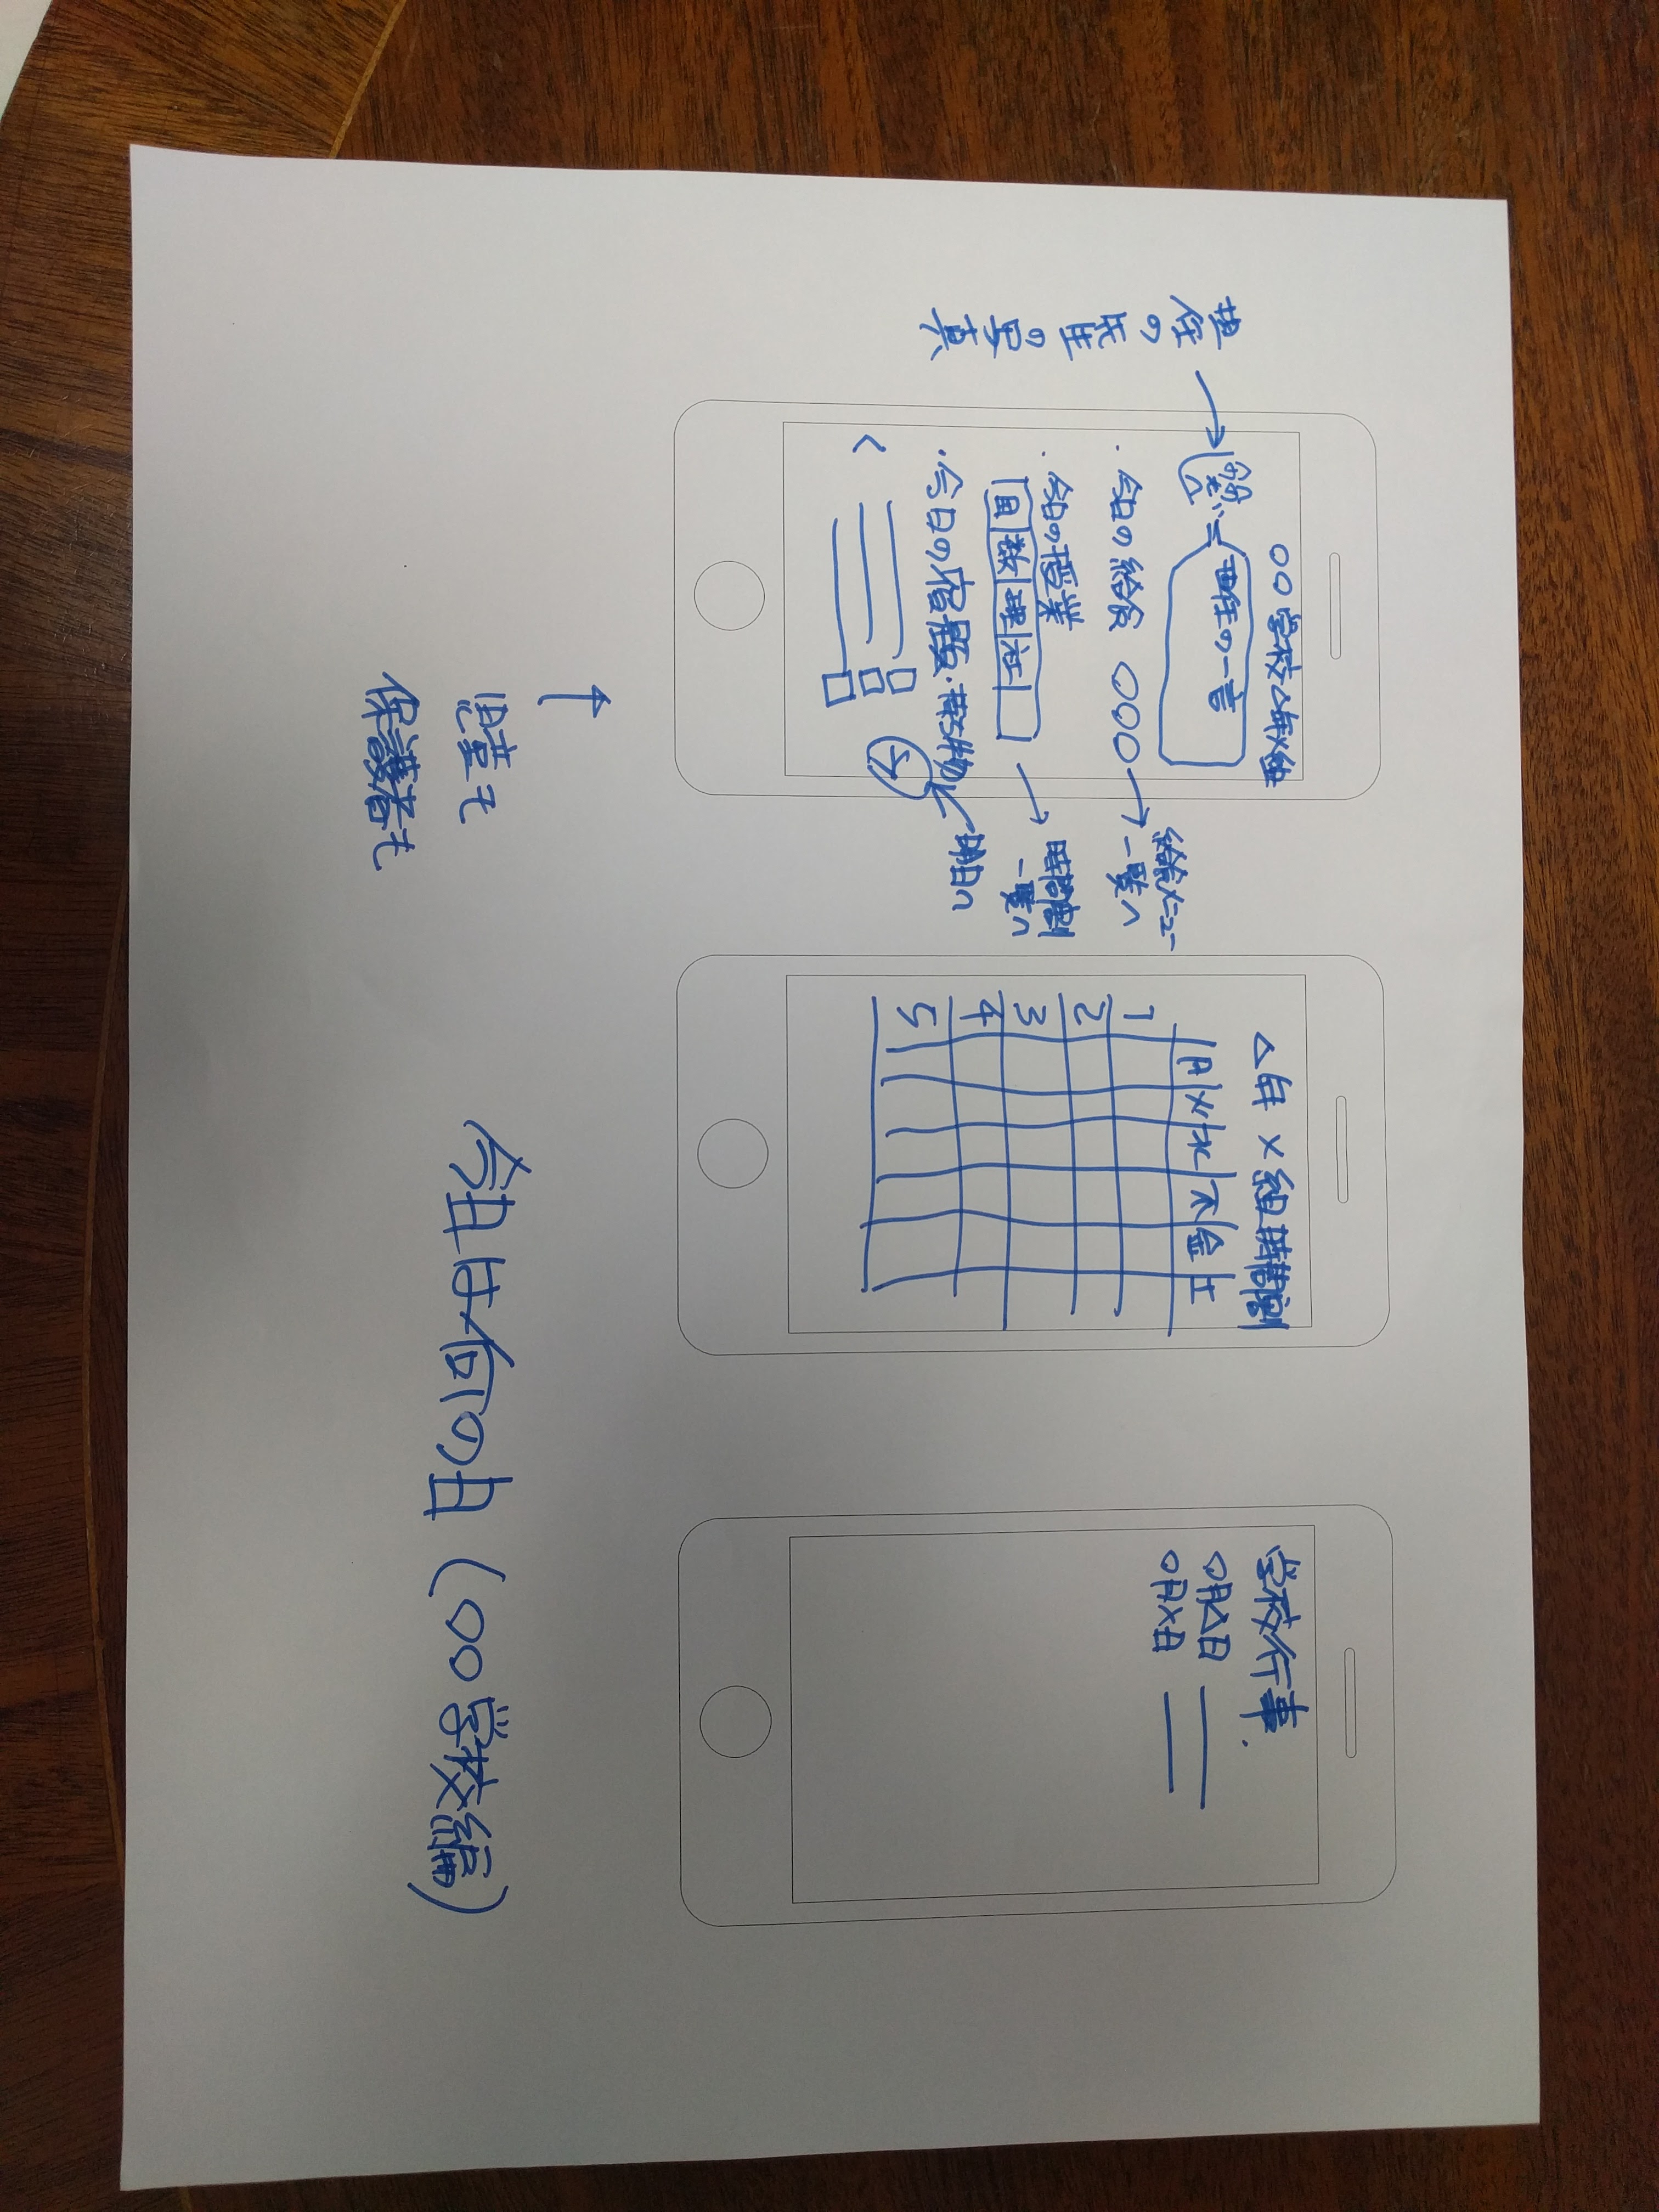 担任の先生の写真
○○学校△年×組
担任の一言
・今日の給食 ○○○
→ 給食メニュー
一覧へ
・今日の授業
国 数 理 社
→ 時間割
一覧へ
・今日の宿題・荷物
明日へ
<
>
↑
児童も
保護者も
△年 ×組 時間割
月 火 水 木 金 土
1
2
3
4
5
学校行事
○月△日
○月×日
今日は何の日 (○○学校編)